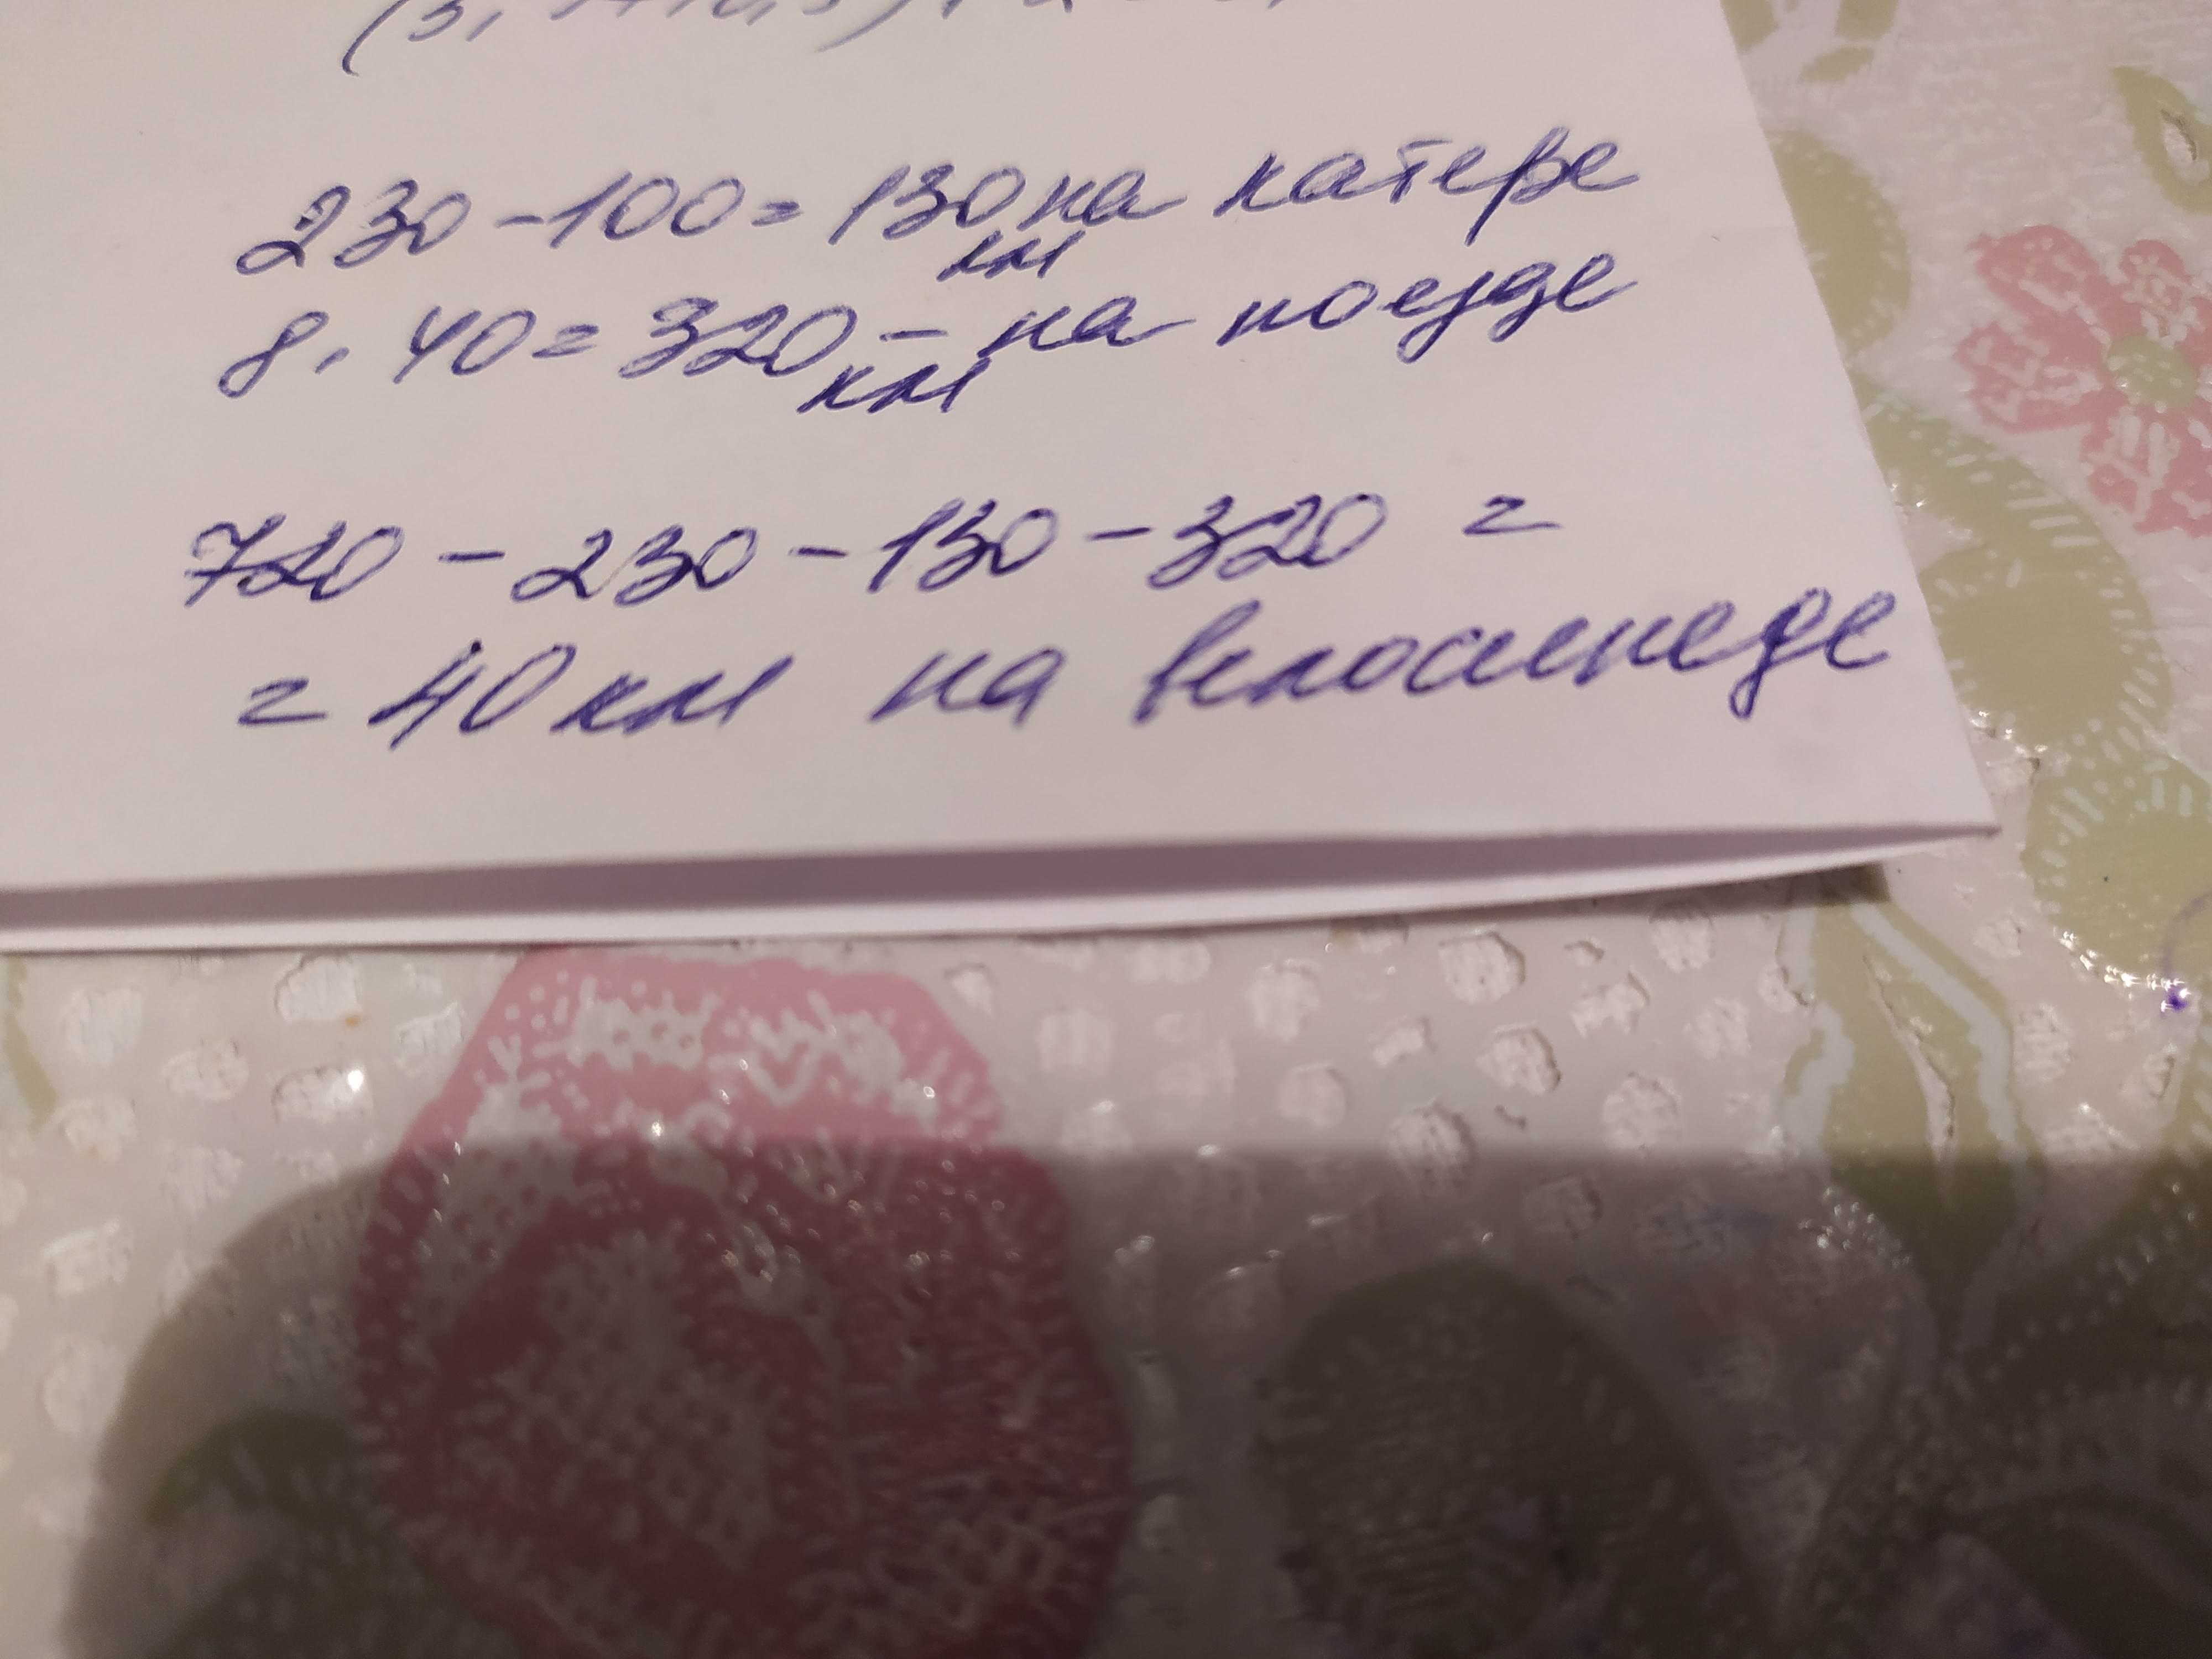 230 - 100 = 130 на катере
км
8 . 40 = 320 - на поезде
км
720 - 230 - 130 - 320 =
= 40 км на велосипеде